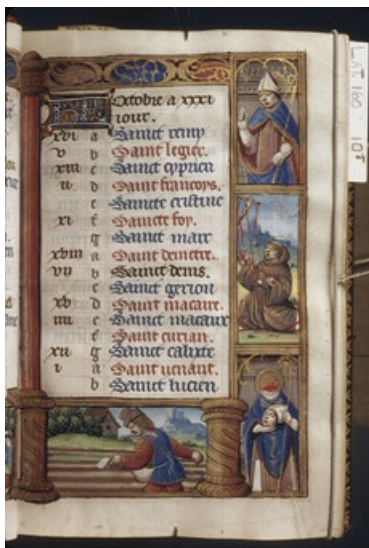 Octobre a xxxi
iour.
xvi a Sainct remy
v b Saint legier.
xiii c Sainct cyprien
ii d Saint francoys.
e Saincte cristine
xi f Saincte foy.
g Sainct marc
xviii a Saint demetre.
vii b Sainct denis.
c Sainct gerion
xv d Saint macaire.
iiii e Sainct macaire
f Saint curian.
xii g Sainct calixte
i a Saint venant.
b Sainct lucien
LAT. 160 10T